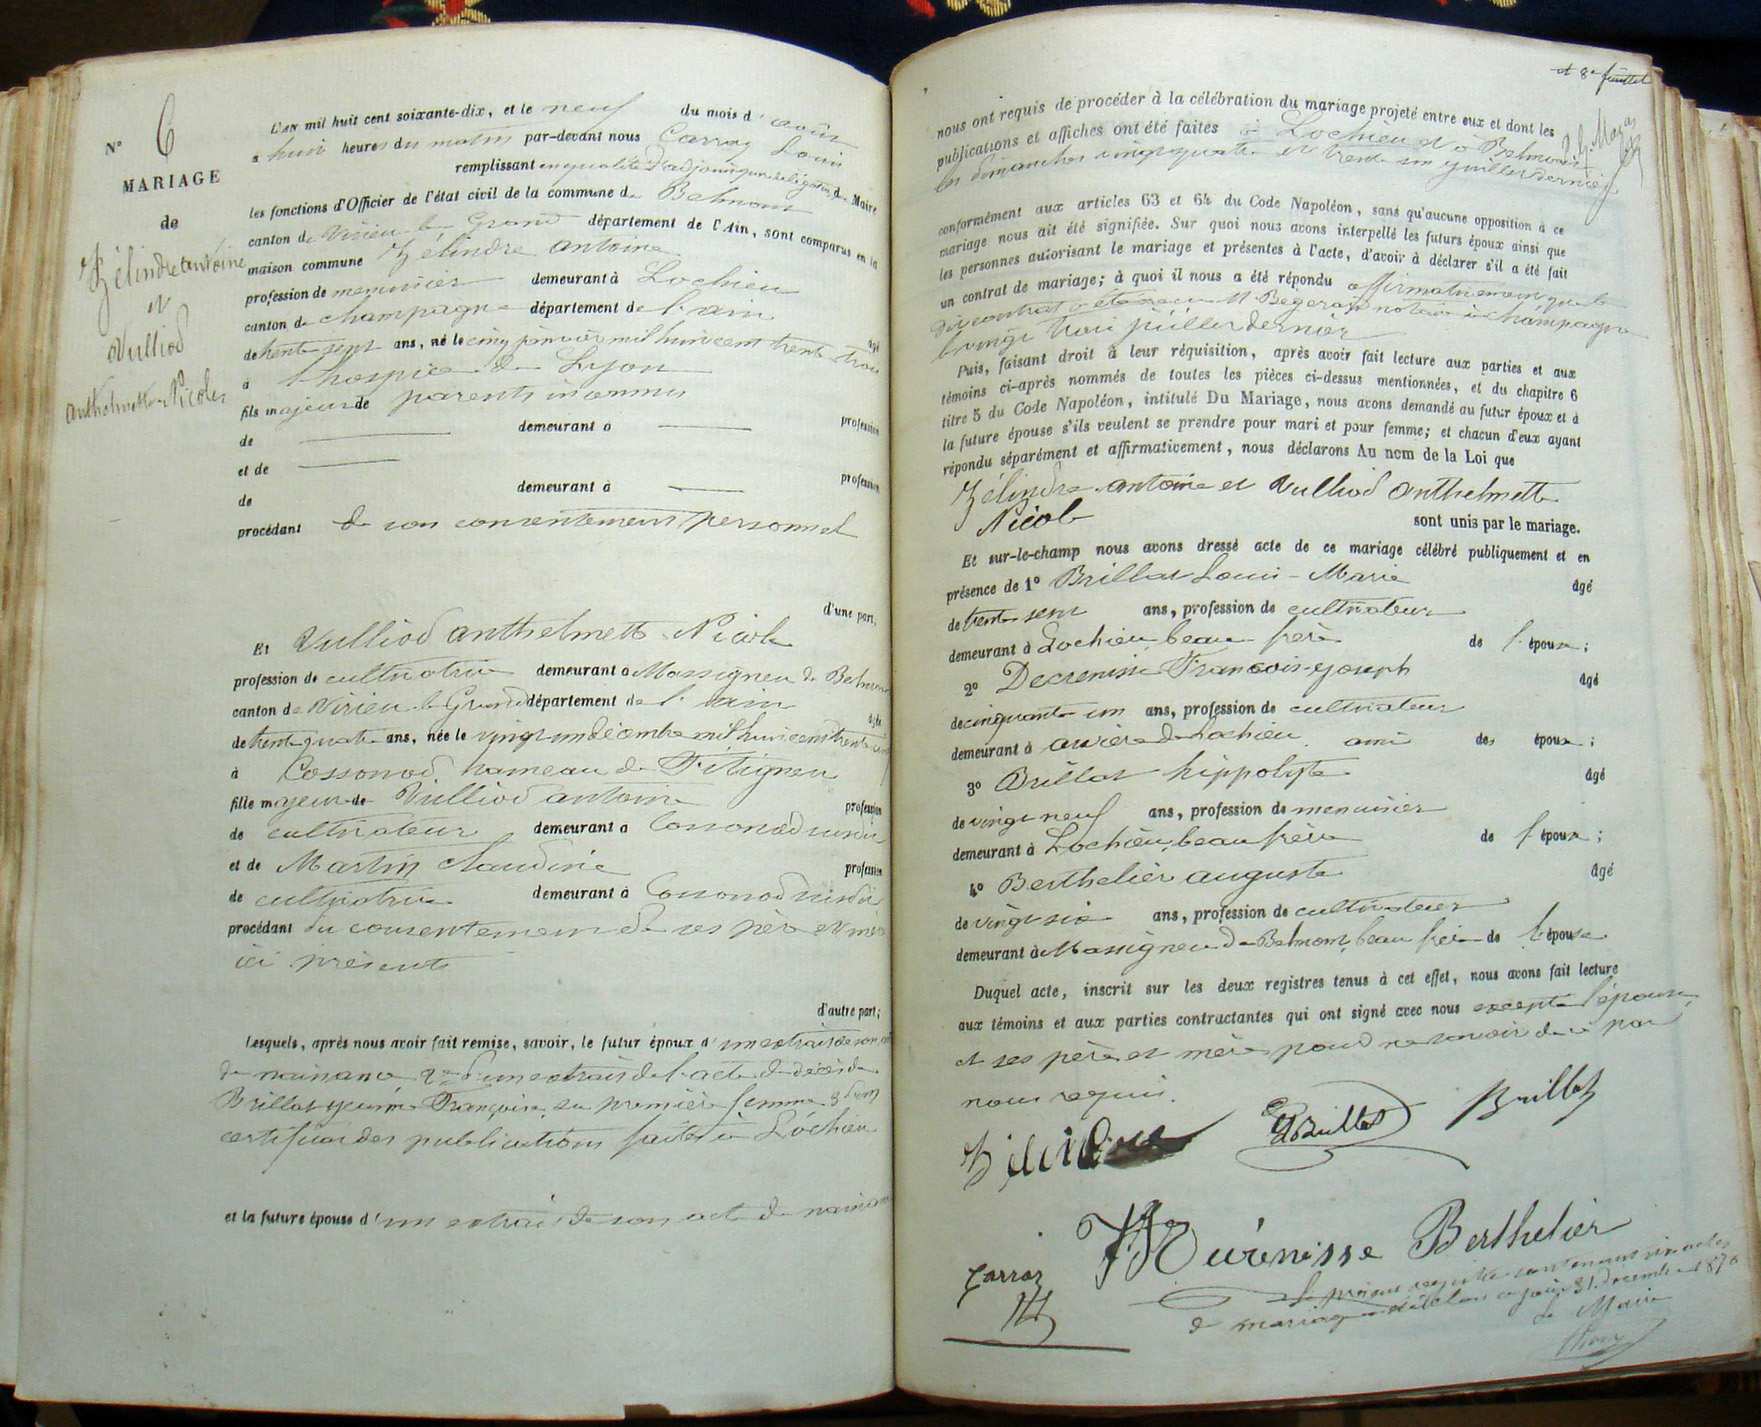 N° 6
MARIAGE
de
Zélindre antoine
et
Vulliod
Anthelmette Nicole
L'AN mil huit cent soixante-dix, et le neuf du mois d'août
à huit heures du matin par-devant nous Carraz Louis
remplissant en qualité d'adjoint par délégation du Maire
les fonctions d'Officier de l'état civil de la commune de Belmont
canton de Virieu le Grand département de l'Ain, sont comparus en la
maison commune Zélindre antoine
profession de menuisier demeurant à Lochieu
canton de champagne département de l'ain âgé
de trente sept ans, né le cinq janvier mil huit cent trente trois
à l'hospice de Lyon
fils majeur de parents inconnus profession
de demeurant à
et de profession
de demeurant à
procédant de son consentement personnel
d'une part,
Et Vulliod anthelmette Nicole
profession de cultivatrice demeurant à Massigneu de Belmont
canton de Virieu le Grand département de l'ain âgée
de trente quatre ans, née le vingt un décembre mil huit cent trente cinq
à Cossonod hameau de Fitigneu
fille majeure de Vulliod antoine profession
de cultivateur demeurant à Cossonod susdit
et de Martin claudine profession
de cultivatrice demeurant à Cossonod susdit
procédant du consentement de ses père et mère
ici présents
d'autre part;
Lesquels, après nous avoir fait remise, savoir, le futur époux d'un extrait de son acte
de naissance 2° d'un extrait de l'acte de décès de
Brillat Jeanne Françoise, sa première femme 3° d'un
certificat des publications faites à Lochieu
et la future épouse d'un extrait de son acte de naissance
et 8e feuillet
nous ont requis de procéder à la célébration du mariage projeté entre eux et dont les
publications et affiches ont été faites à Lochieu et à Belmont
les dimanches vingt quatre et trente un juillet dernier
conformément aux articles 63 et 64 du Code Napoléon, sans qu'aucune opposition à ce
mariage nous ait été signifiée. Sur quoi nous avons interpellé les futurs époux ainsi que
les personnes autorisant le mariage et présentes à l'acte, d'avoir à déclarer s'il a été fait
un contrat de mariage; à quoi il nous a été répondu affirmativement que le
dit contrat a été reçu M. Begerard notaire à champagne
le vingt trois juillet dernier
Puis, faisant droit à leur réquisition, après avoir fait lecture aux parties et aux
témoins ci-après nommés de toutes les pièces ci-dessus mentionnées, et du chapitre 6
titre 5 du Code Napoléon, intitulé Du Mariage, nous avons demandé au futur époux et à
la future épouse s'ils veulent se prendre pour mari et pour femme; et chacun d'eux ayant
répondu séparément et affirmativement, nous déclarons Au nom de la Loi que
Zélindre antoine et Vulliod anthelmette
Nicole
sont unis par le mariage.
Et sur-le-champ nous avons dressé acte de ce mariage célébré publiquement et en
présence de 1° Brillat Louis-Marie âgé
de trente sept ans, profession de cultivateur
demeurant à Lochieu beau frère de l'époux;
2° Decrenisse François-joseph âgé
de cinquante un ans, profession de cultivateur
demeurant à de Lochieu ami des époux;
3° Brillat hippolyte âgé
de vingt neuf ans, profession de menuisier
demeurant à Lochieu, beau frère de l'époux;
4° Berthelier auguste âgé
de vingt six ans, profession de cultivateur
demeurant à Massigneu de Belmont, beau frère de l'épouse
Duquel acte, inscrit sur les deux registres tenus à cet effet, nous avons fait lecture
aux témoins et aux parties contractantes qui ont signé avec nous excepté l'épouse
et ses père et mère pour ne savoir de ce par
nous requis.
Zélindre Brillat Brillat
Berthelier
Carraz
Le présent registre contenant six actes
de mariage a été clos ce jour 31 décembre 1870
Le Maire